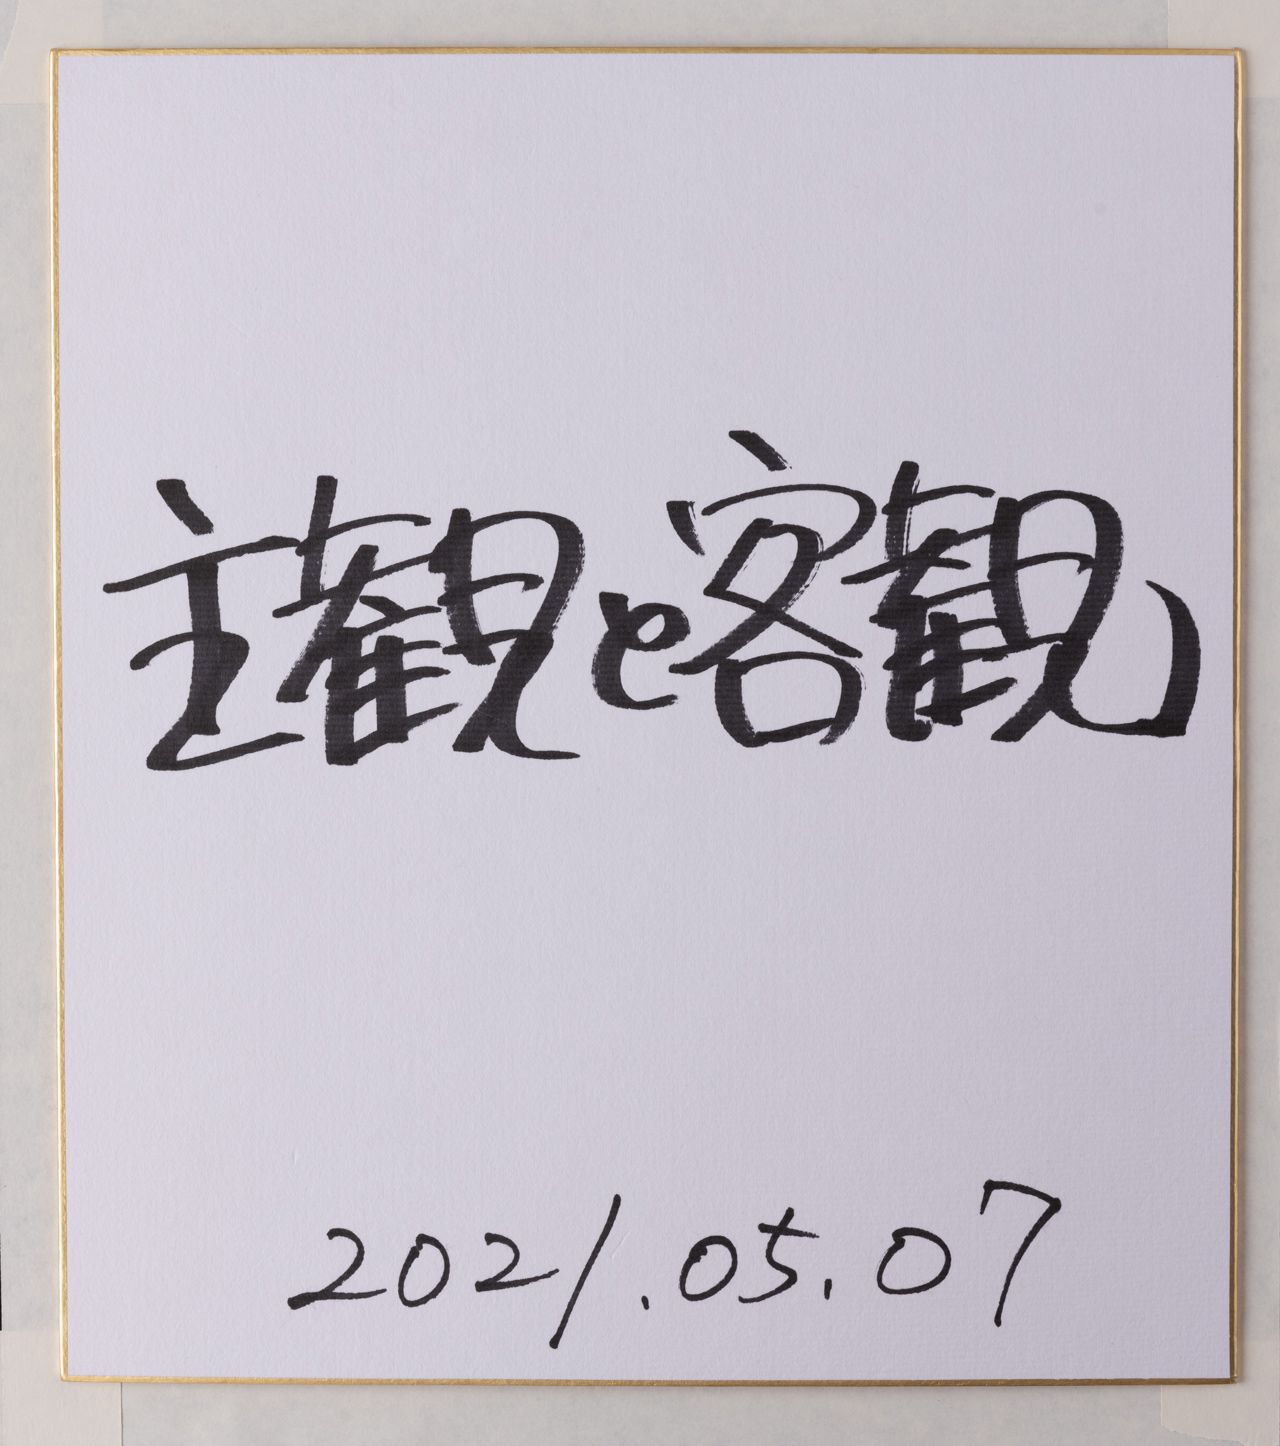 主観と客観
2021.05.07